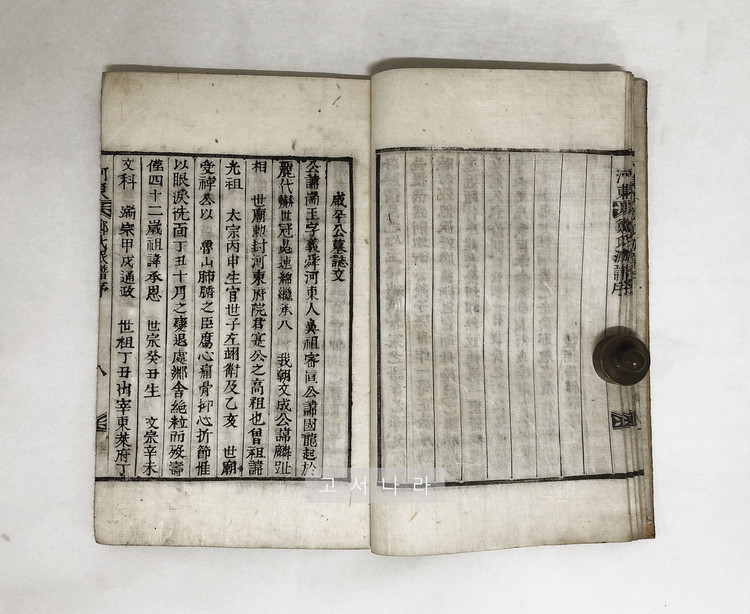 河東鄭氏派譜序
平公墓誌文
公諱尚王字義舜河東人鼻祖密直公諱國龍起於
麗代蟬世冠冕連綿繼承入 我朝文成公諱麟趾
相 世廟勳封河東府院君寔公之高祖也曾祖諱
光祖 太宗丙申生官世子左翊衛及乙亥 世廟
受禪 以 魯山肺腑之臣腐心痛骨抑心折節惟
以眼淚洗面丁丑十月之變退處鄉舍絶粒而歿壽
僅四十二歲祖諱承恩 世宗癸丑生 文宗辛未
文科 端宗甲戌通政 世祖丁丑出宰東萊府丁
河東 鄭氏派譜序 八
고서나라